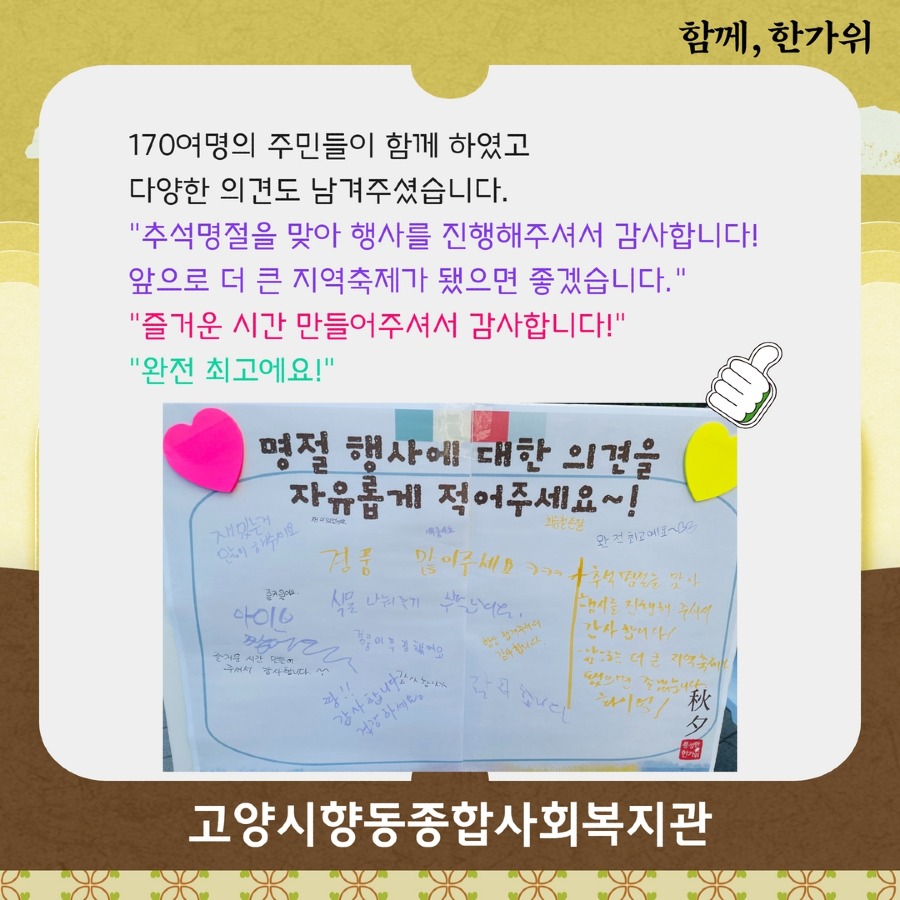 함께, 한가위
170여명의 주민들이 함께 하였고
다양한 의견도 남겨주셨습니다.
"추석명절을 맞아 행사를 진행해주셔서 감사합니다!
앞으로 더 큰 지역축제가 됐으면 좋겠습니다."
"즐거운 시간 만들어주셔서 감사합니다!"
"완전 최고에요!"
명절 행사에 대한 의견을
자유롭게 적어주세요~!
재밌는거
많이 해주세요
완전 최고에요~
경품 많이주세요 ㅋㅋㅋ
식물 나눠주기
즐거운 시간 만들어
주셔서 감사합니다
감사합니다
건강하세요
추석 명절을 맞아
행사를 진행해 주셔서
감사합니다!
앞으로 더 큰 지역축제가
됐으면 좋겠습니다
화이팅!
秋
夕
고양시향동종합사회복지관